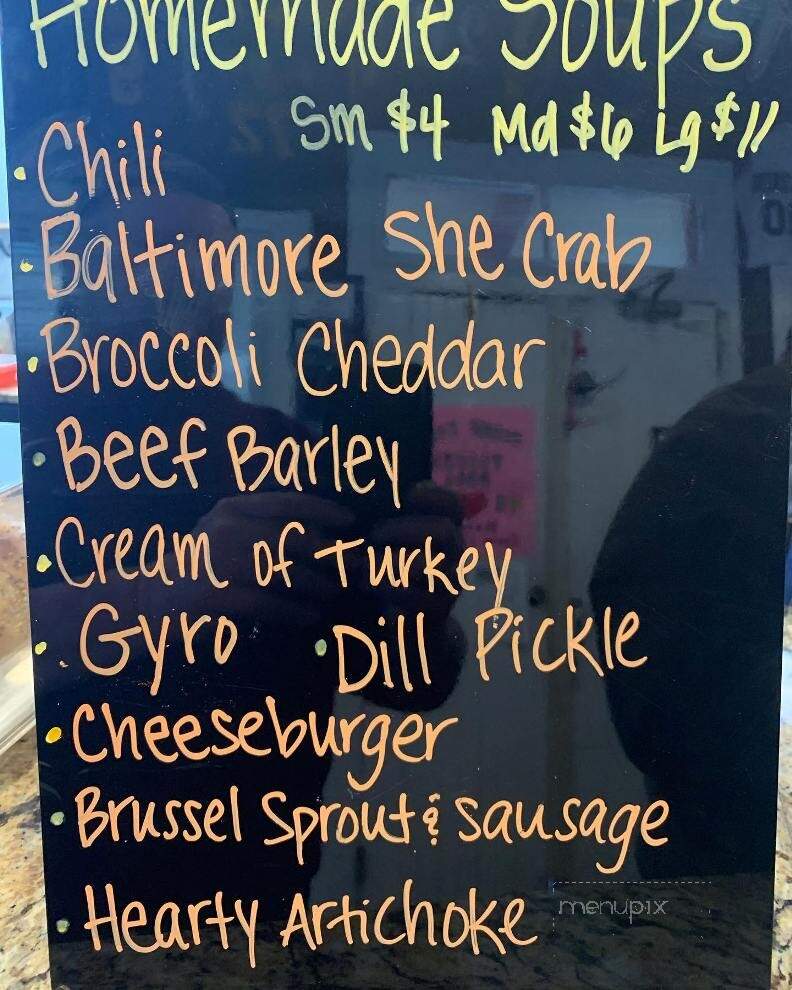 Homemade Soups
Sm $4 Md $6 Lg $11
• Chili
• Baltimore She Crab
• Broccoli Cheddar
• Beef Barley
• Cream of Turkey
• Gyro • Dill Pickle
• Cheeseburger
• Brussel Sprout & Sausage
• Hearty Artichoke
menupix